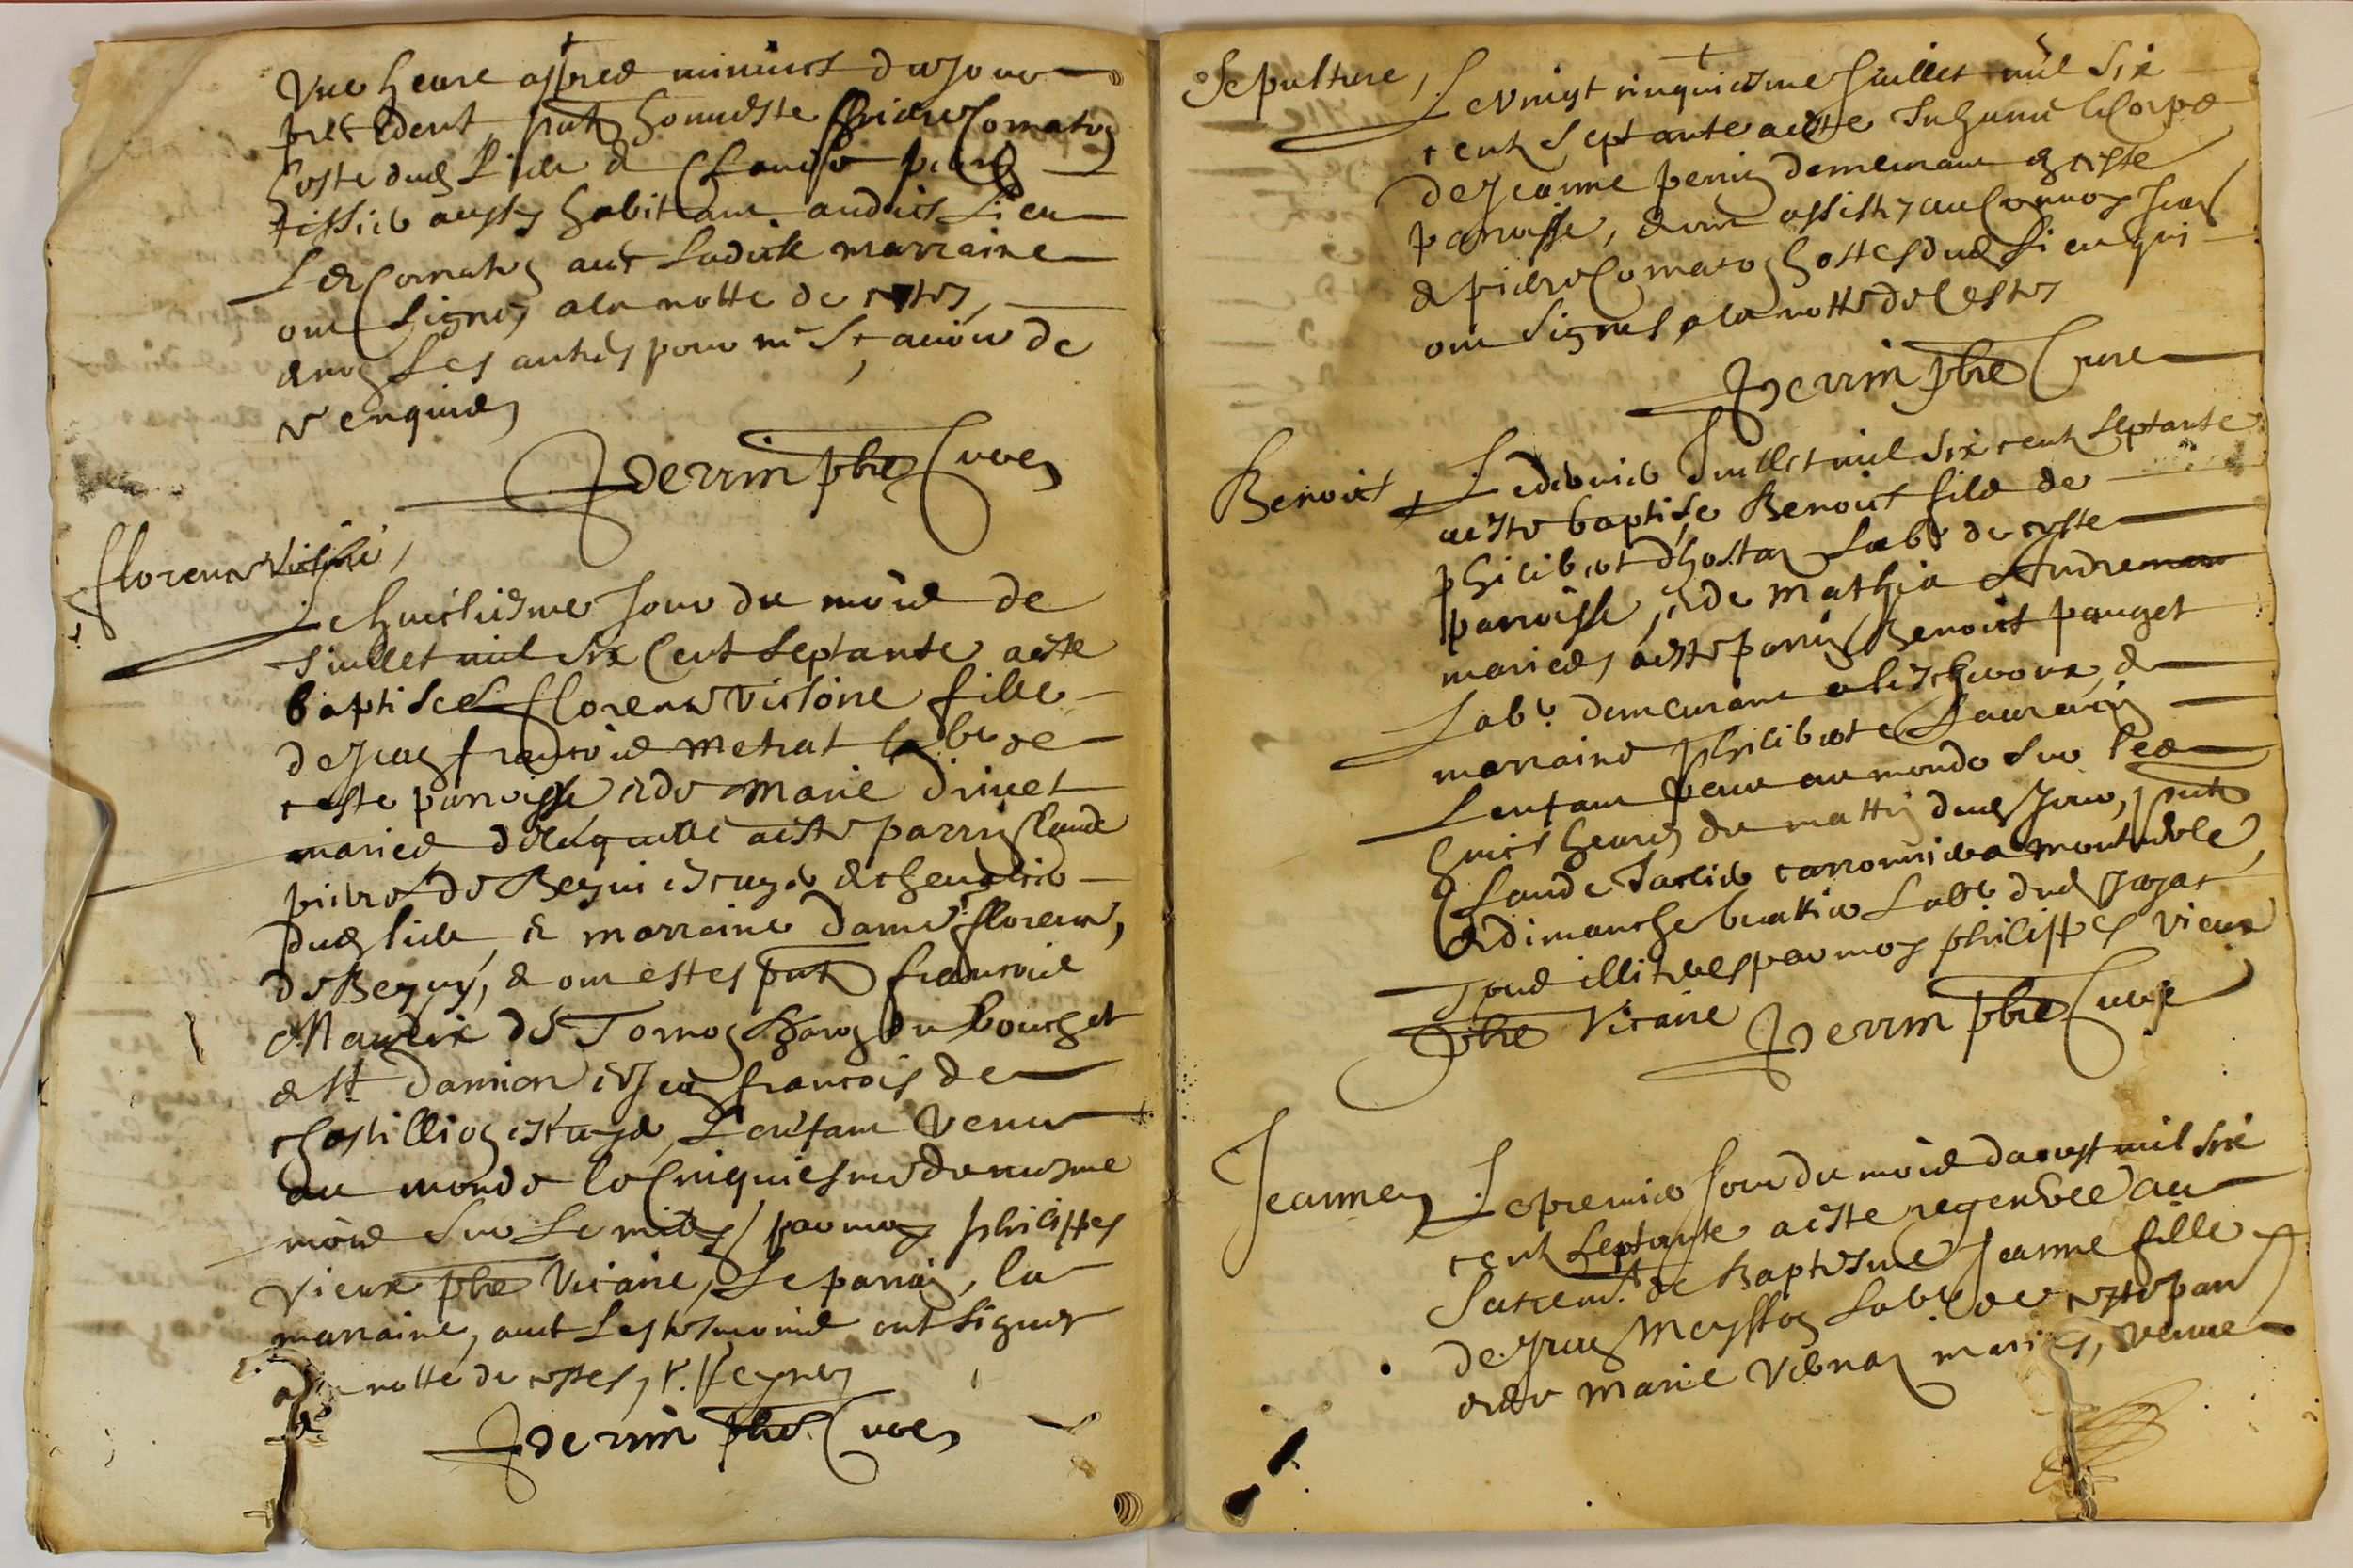 Une heure apres minuict du jour
precedent, pnts honneste pierre Comaton
hoste dud Lieu & Claude
tissier aussy habitant audict Lieu
Led Comaton avec Ladicte marraine
ont Signez a la notte de cestes
& non Les autres pour ne Scavoir de
ce enquis
Perrin pbre Cure
florence victoire,
Le huictiesme Jour du mois de
Juillet mil Six Cent Septante a este
baptisee florence Victoire fille
de Jean francois metrat labr de
ceste parroisse et de Marie drivet
maries de laquelle a este parrin Claude
pierre de Beguin escuyer & chevalier
dud lieu & marraine dame florence,
de Beguy, & ont estes pnts francois
Mandrix de Tornon Baron du bourget
& St Damian et Jean francois de
Chastillion escuyer, L'enfant venu
au monde le Cinquiesme du mesme
mois Sur Le midy, par moy philippes
Vieux pbre Vicaire, Le parrain, la
marraine, avec Les tesmoins ont Signez
a la notte de cestes,
Perrin pbre Cure
Sepulture, Le vingt cinquiesme Juillet mil Six
cent Septante a este Inhumé le Corps
de Jeanne perrin demeurant en ceste
parroisse, & ont assistez au Convoy Jean
& pierre Comaton hostes dud Lieu qui
ont Signes a la notte de Cestes
Perrin pbre Cure
Benoict, Le dernier Juillet mil Six cent Septante
a este baptise Benoict fils de
philibert dhostan Labr de ceste
parroisse, et de Mathia Andre
maries, a este parrin Benoict pauget
Labr demeurant a leschroux, &
marraine philiberte Laurencin
L'enfant venu au monde Sur Les
huict heures du mattin dud Jour, pnts
Claude Tarlier a montrevele,
& dimanche Labr dud
Tous illitres par moy philippes vieux
pbre Vicaire Perrin pbre Cure
Jeanne, Le premier Jour du mois daoust mil Six
cent Septante a este regenéree au
Sacremt de Baptesme Jeanne fille
de Jean Labr de ceste parr
et de Marie maries, venue